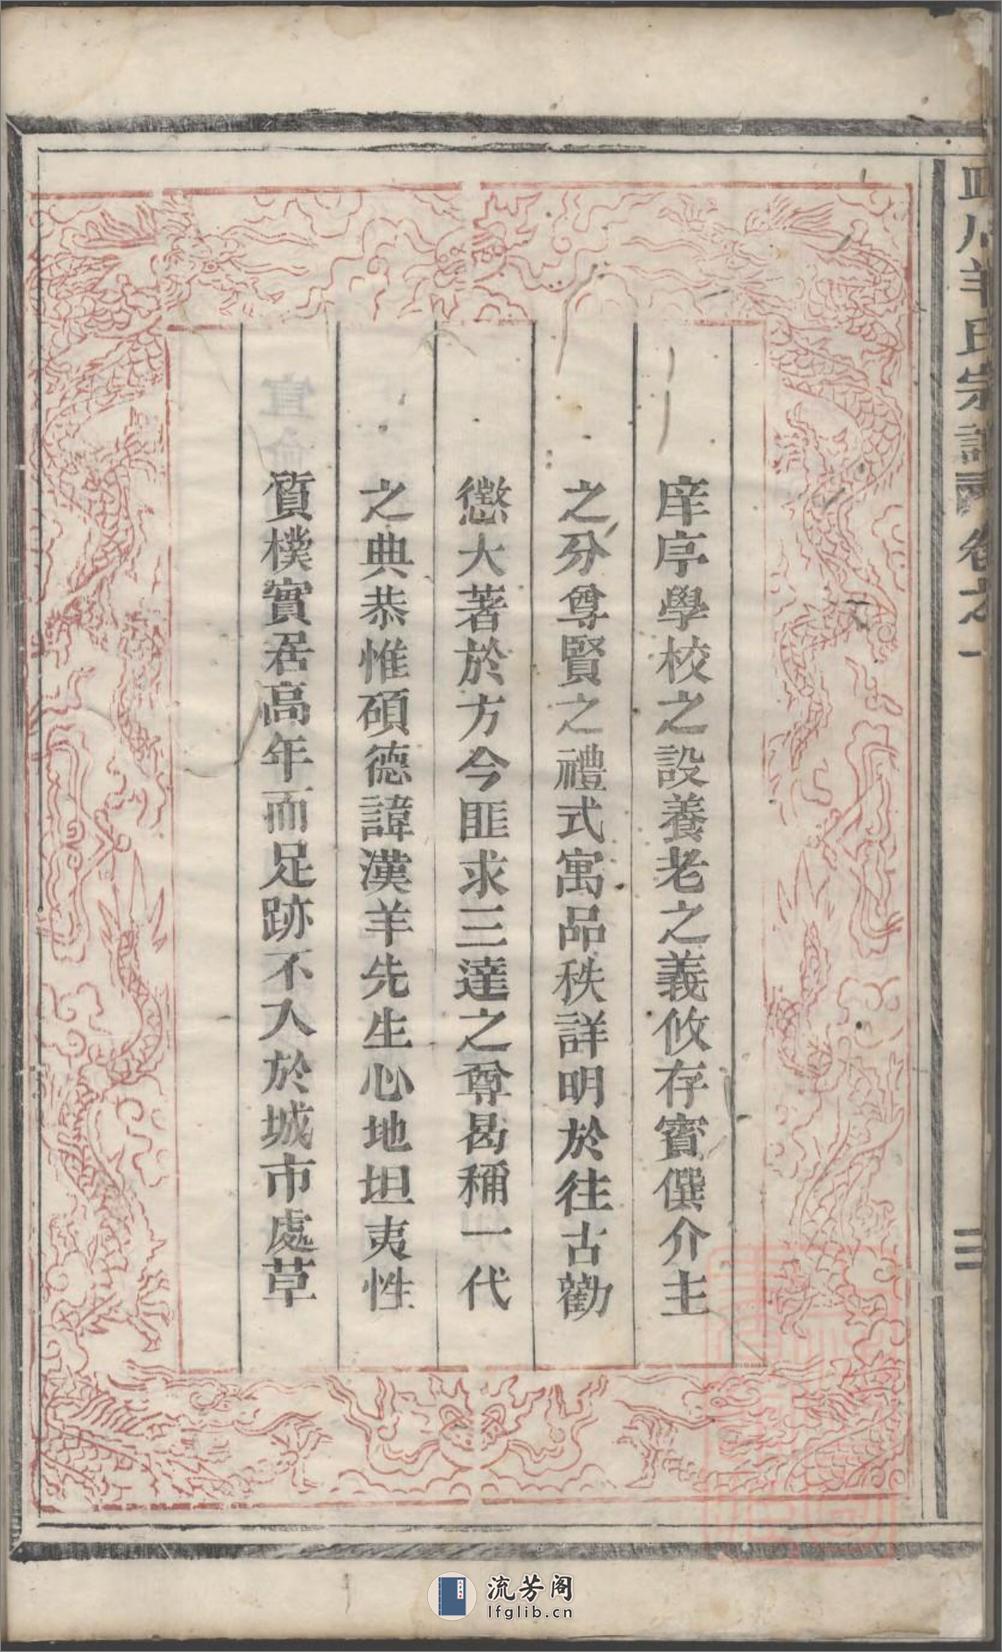 羊氏宗譜 卷之一
三
庠序學校之設養老之義攸存賓僎介主
之分尊賢之禮式寓品秩詳明於往古勸
懲大著於方今匪求三達之尊曷稱一代
之典恭惟碩德諱漢羊先生心地坦夷性
質樸實居高年而足跡不入於城市處草
流芳阁
lfglib.cn